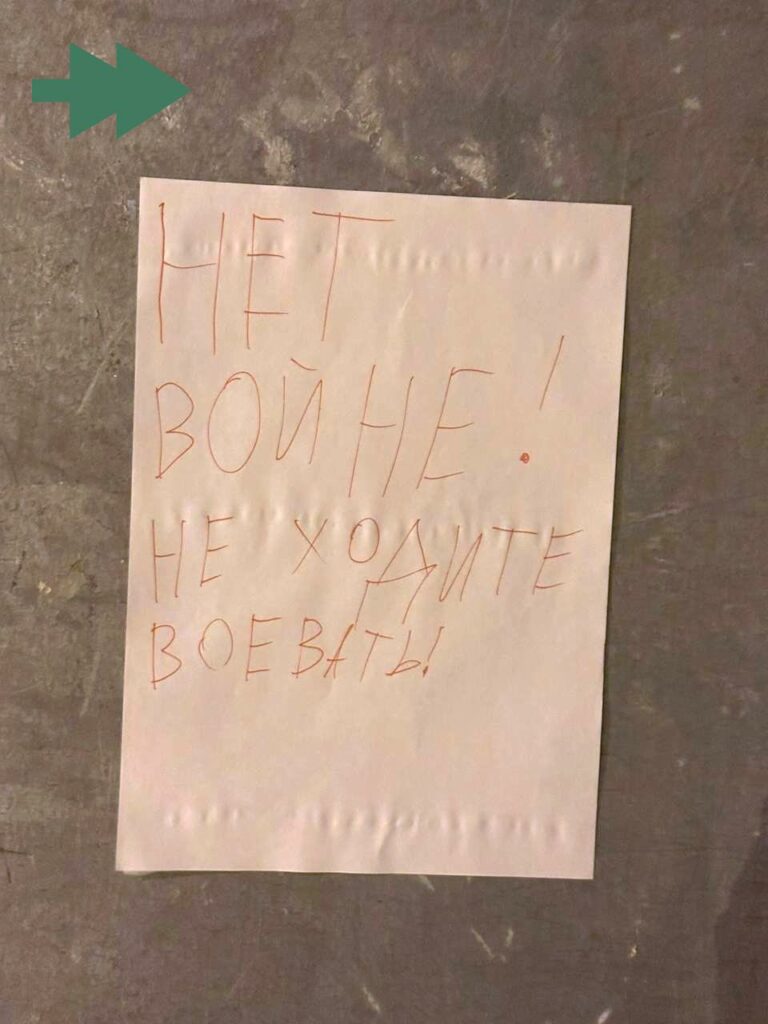 НЕТ
ВОЙНЕ!
НЕ ХОДИТЕ
ВОЕВАТЬ!